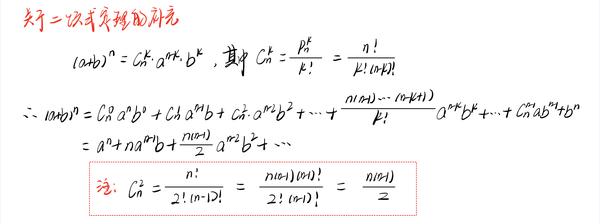 关于二项式定理的补充
(a+b)^n = C_n^k · a^{n-k} · b^k , 其中 C_n^k = P_n^k / k! = n! / k!(n-k)!
∴ (a+b)^n = C_n^0 a^n b^0 + C_n^1 a^{n-1} b + C_n^2 · a^{n-2} b^2 + ⋯ + n(n-1)⋯(n-k+1) / k! a^{n-k} b^k + ⋯ + C_n^{n-1} a b^{n-1} + b^n
= a^n + n a^{n-1} b + n(n-1) / 2 a^{n-2} b^2 + ⋯
注: C_n^2 = n! / 2!(n-1)! = n(n-1)(n-1)! / 2!(n-1)! = n(n-1) / 2